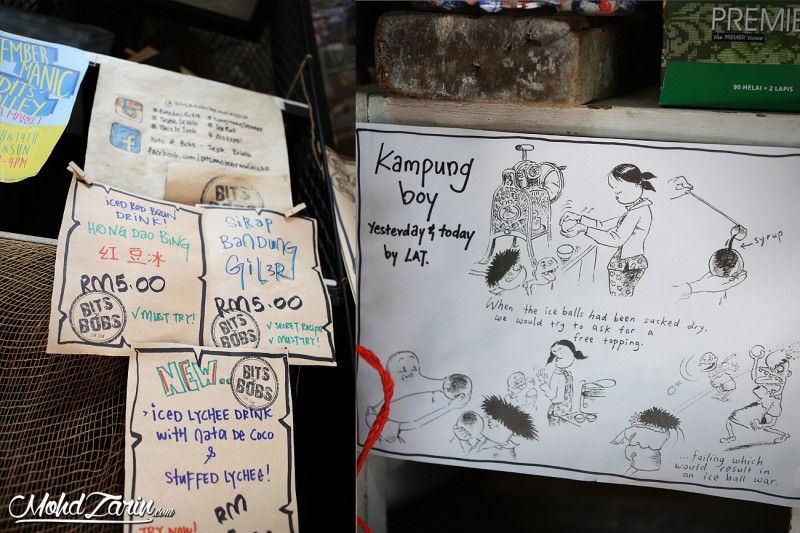 EMBER
MANIC
BITS
VALLEY
MARKET
& SUN
4PM
Bits & Bobs
BITS
BOBS
ICED RED BEAN
DRINK!
HONG DAO BING
红豆冰
RM5.00
BITS
BOBS
✓MUST TRY!
SIRAP
BANDUNG
GIL3R
RM5.00
BITS
BOBS
✓SECRET RECIPE
✓MUST TRY!
NEW..
BITS
BOBS
>ICED LYCHEE DRINK
WITH NATA DE COCO
&
STUFFED LYCHEE!
RM
TRY NOW!
MohdZarin.com
PREMIE
the PREMIER tissue
90 HELAI • 2 LAPIS
Kampung
boy
Yesterday & today
by LAT.
syrup
When the ice balls had been sucked dry,
we would try to ask for a
free topping.
...failing which
would result in
an ice ball war.